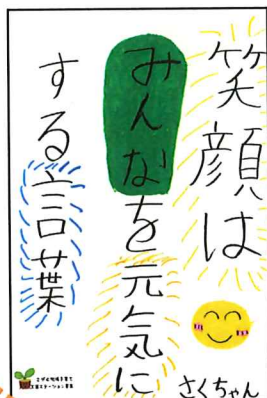 笑顔は
みんなを元気に
する言葉
さくちゃん